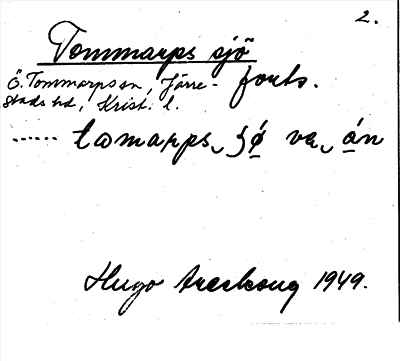 2.
Tommarps sjö
forts.
Ö. Tommarps sn, Järre-
stads hd, Krist. l.
...... tomarps, sø va, án
Hugo Areskoug 1949.